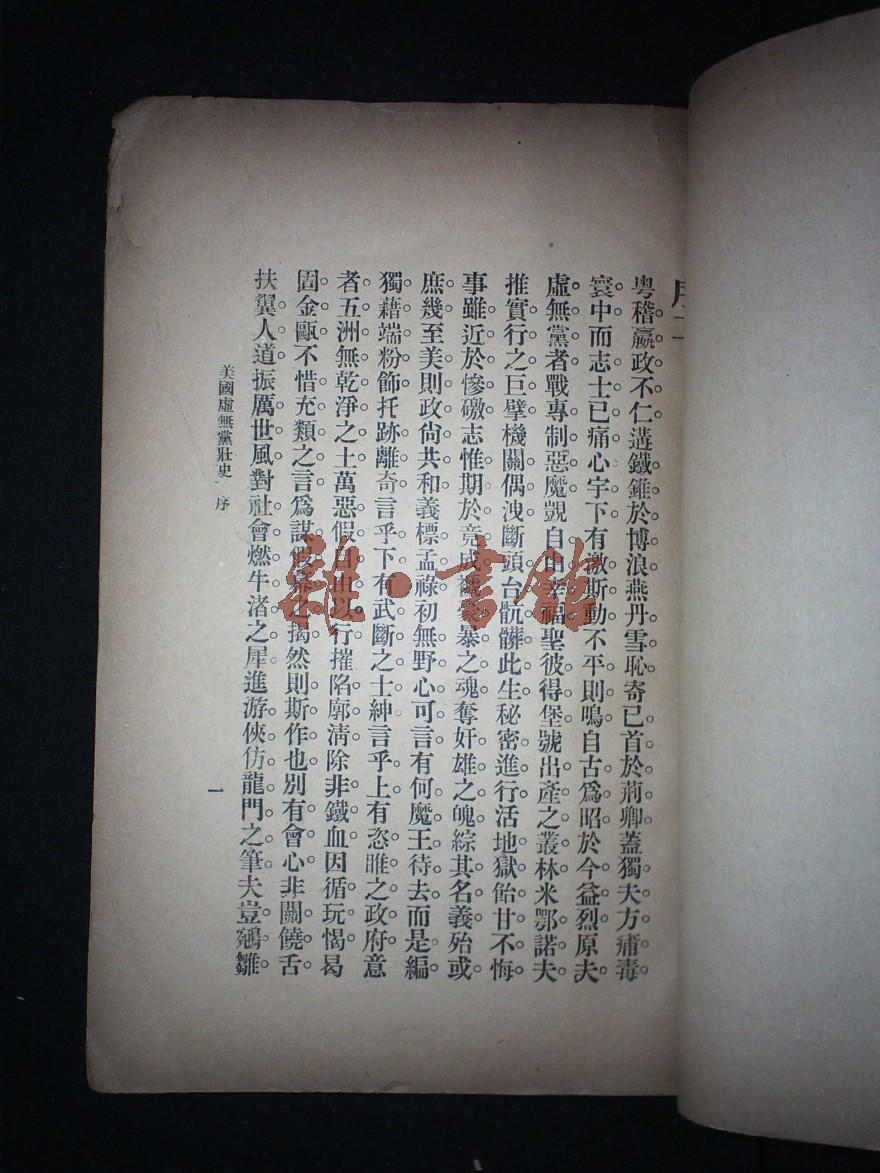 序二
粤稽嬴政不仁遘鐵錐於博浪燕丹雪恥寄匕首於荊卿蓋獨夫方痡毒
寰中而志士已痛心宇下有激斯動不平則鳴自古爲昭於今益烈原夫
虛無黨者戰專制惡魔覬自由幸福聖彼得堡號出產之叢林米鄂諾夫
推實行之巨擘機關偶洩斷頭台骯髒此生秘密進行活地獄飴甘不悔
事雖近於慘礉志惟期於竟成褫豪暴之魂奪奸雄之魄綜其名義殆或
庶幾至美則政尙共和義標孟祿初無野心可言有何魔王待去而是編
獨藉端粉飾托跡離奇言乎下有武斷之士紳言乎上有恣睢之政府意
者五洲無乾淨之土萬惡假自由以行摧陷廓淸除非鐵血因循玩愒曷
固金甌不惜充類之言爲謀假幕之揭然則斯作也別有會心非關饒舌
扶翼人道振厲世風對社會燃牛渚之犀進游俠仿龍門之筆夫豈鵷雛
美國虛無黨壯史 序
一
雜·書館